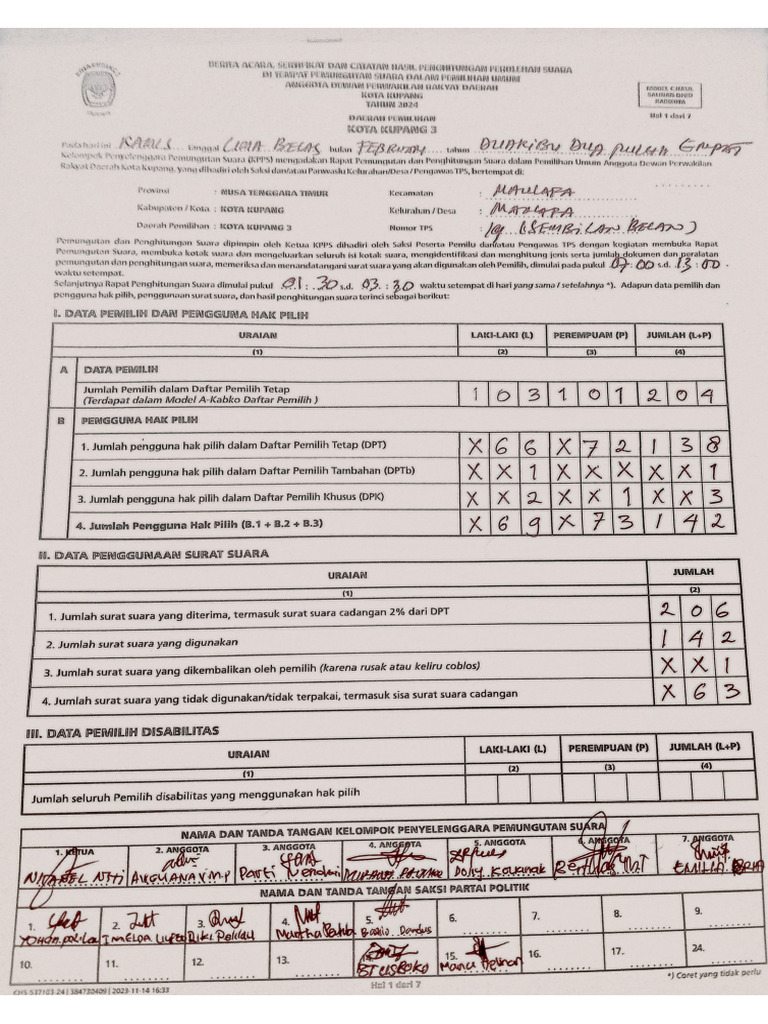 BERITA ACARA, SERTIFIKAT DAN CATATAN HASIL PENGHITUNGAN PEROLEHAN SUARA
DI TEMPAT PEMUNGUTAN SUARA DALAM PEMILIHAN UMUM
ANGGOTA DEWAN PERWAKILAN RAKYAT DAERAH
KOTA KUPANG
TAHUN 2024
MODEL C.HASIL
SALINAN-DPRD
KAB/KOTA
Hal 1 dari 7
DAERAH PEMILIHAN
KOTA KUPANG 3
Pada hari ini KAMIS tanggal LIMA BELAS bulan FEBRUARI tahun DUARIBU DUA PULUH EMPAT
Kelompok Penyelenggara Pemungutan Suara (KPPS) mengadakan Rapat Pemungutan dan Penghitungan Suara dalam Pemilihan Umum Anggota Dewan Perwakilan
Rakyat Daerah Kota Kupang, yang dihadiri oleh Saksi dan/atau Panwaslu Kelurahan/Desa / Pengawas TPS, bertempat di:
Provinsi : NUSA TENGGARA TIMUR Kecamatan : MAULAFA
Kabupaten / Kota : KOTA KUPANG Kelurahan / Desa : MAULAFA
Daerah Pemilihan : KOTA KUPANG 3 Nomor TPS : 19 (SEMBILAN BELAS)
Pemungutan dan Penghitungan Suara dipimpin oleh Ketua KPPS dihadiri oleh Saksi Peserta Pemilu dan/atau Pengawas TPS dengan kegiatan membuka Rapat
Pemungutan Suara, membuka kotak suara dan mengeluarkan seluruh isi kotak suara, mengidentifikasi dan menghitung jenis serta jumlah dokumen dan peralatan
pemungutan dan penghitungan suara, memeriksa dan menandatangani surat suara yang akan digunakan oleh Pemilih, dimulai pada pukul 07:00 s.d. 13:00.
waktu setempat.
Selanjutnya Rapat Penghitungan Suara dimulai pukul 01.30 s.d. 03:30 waktu setempat di hari yang sama / setelahnya *). Adapun data pemilih dan
pengguna hak pilih, penggunaan surat suara, dan hasil penghitungan suara terinci sebagai berikut:
I. DATA PEMILIH DAN PENGGUNA HAK PILIH
URAIAN LAKI-LAKI (L) PEREMPUAN (P) JUMLAH (L+P)
(1) (2) (3) (4)
A DATA PEMILIH
Jumlah Pemilih dalam Daftar Pemilih Tetap
(Terdapat dalam Model A-Kabko Daftar Pemilih ) 1 0 3 1 0 1 2 0 4
B PENGGUNA HAK PILIH
1. Jumlah pengguna hak pilih dalam Daftar Pemilih Tetap (DPT) X 6 6 X 7 2 1 3 8
2. Jumlah pengguna hak pilih dalam Daftar Pemilih Tambahan (DPTb) X X 1 X X X X X 1
3. Jumlah pengguna hak pilih dalam Daftar Pemilih Khusus (DPK) X X 2 X X 1 X X 3
4. Jumlah Pengguna Hak Pilih (B.1 + B.2 + B.3) X 6 9 X 7 3 1 4 2
II. DATA PENGGUNAAN SURAT SUARA
URAIAN JUMLAH
(1) (2)
1. Jumlah surat suara yang diterima, termasuk surat suara cadangan 2% dari DPT 2 0 6
2. Jumlah surat suara yang digunakan 1 4 2
3. Jumlah surat suara yang dikembalikan oleh pemilih (karena rusak atau keliru coblos) X X 1
4. Jumlah surat suara yang tidak digunakan/tidak terpakai, termasuk sisa surat suara cadangan X 6 3
III. DATA PEMILIH DISABILITAS
URAIAN LAKI-LAKI (L) PEREMPUAN (P) JUMLAH (L+P)
(1) (2) (3) (4)
Jumlah seluruh Pemilih disabilitas yang menggunakan hak pilih
NAMA DAN TANDA TANGAN KELOMPOK PENYELENGGARA PEMUNGUTAN SUARA
1. KETUA 2. ANGGOTA 3. ANGGOTA 4. ANGGOTA 5. ANGGOTA 6. ANGGOTA 7. ANGGOTA
EMILIA
NAMA DAN TANDA TANGAN SAKSI PARTAI POLITIK
1. 2. 3. 4. 5. 6. 7. 8. 9.
IMELDA Martha
10. 11. 12. 13. 15. 16. 17. 24.
*) Coret yang tidak perlu
CHS 537103 24 | 384730409 | 2023-11-14 16:33
Hal 1 dari 7